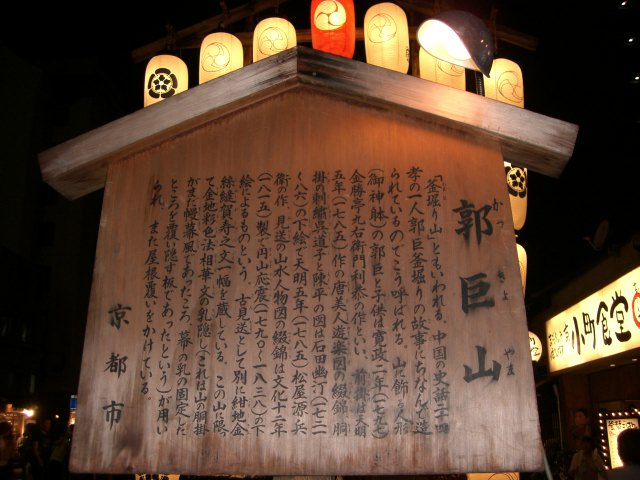 郭巨山
かっきょやま
「釜掘り山」ともいわれる。中国の史話二十四
孝の一人郭巨釜掘りの故事にちなんで造
られているのでこう呼ばれる。山に飾る人形
(御神躰)の郭巨と子供は寛政二年(一七九〇)
金勝亭九右衛門利恭の作といい、前掛は天明
五年(一七八五)作の唐美人遊楽図の綴錦、胴
掛の刺繍呉道子と陳平の図は石田幽汀(一七二
一~八六)の下絵で天明五年(一七八五)松屋源兵
衛の作、見送の山水人物図の綴錦は文化十二年
(一八一五)製で円山応震(一七九〇~一八三八)の下
絵によるものという。古見送として別に紺地金
絲縫賀寿之文一幅を蔵している。この山に限っ
て金地彩色法相華文の乳隠し(これは山の胴掛
がまだ幔幕風であったころ、幕の乳の固定した
ところを覆い隠す板であったという)が用い
られ、また屋根覆いをかけている。
京都市
小町食堂